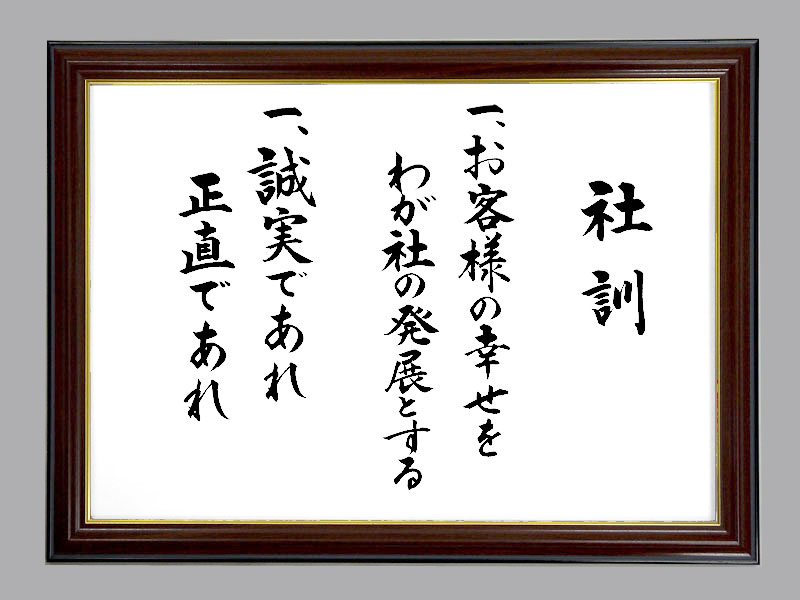 社訓
一、お客様の幸せを
わが社の発展とする
一、誠実であれ
正直であれ